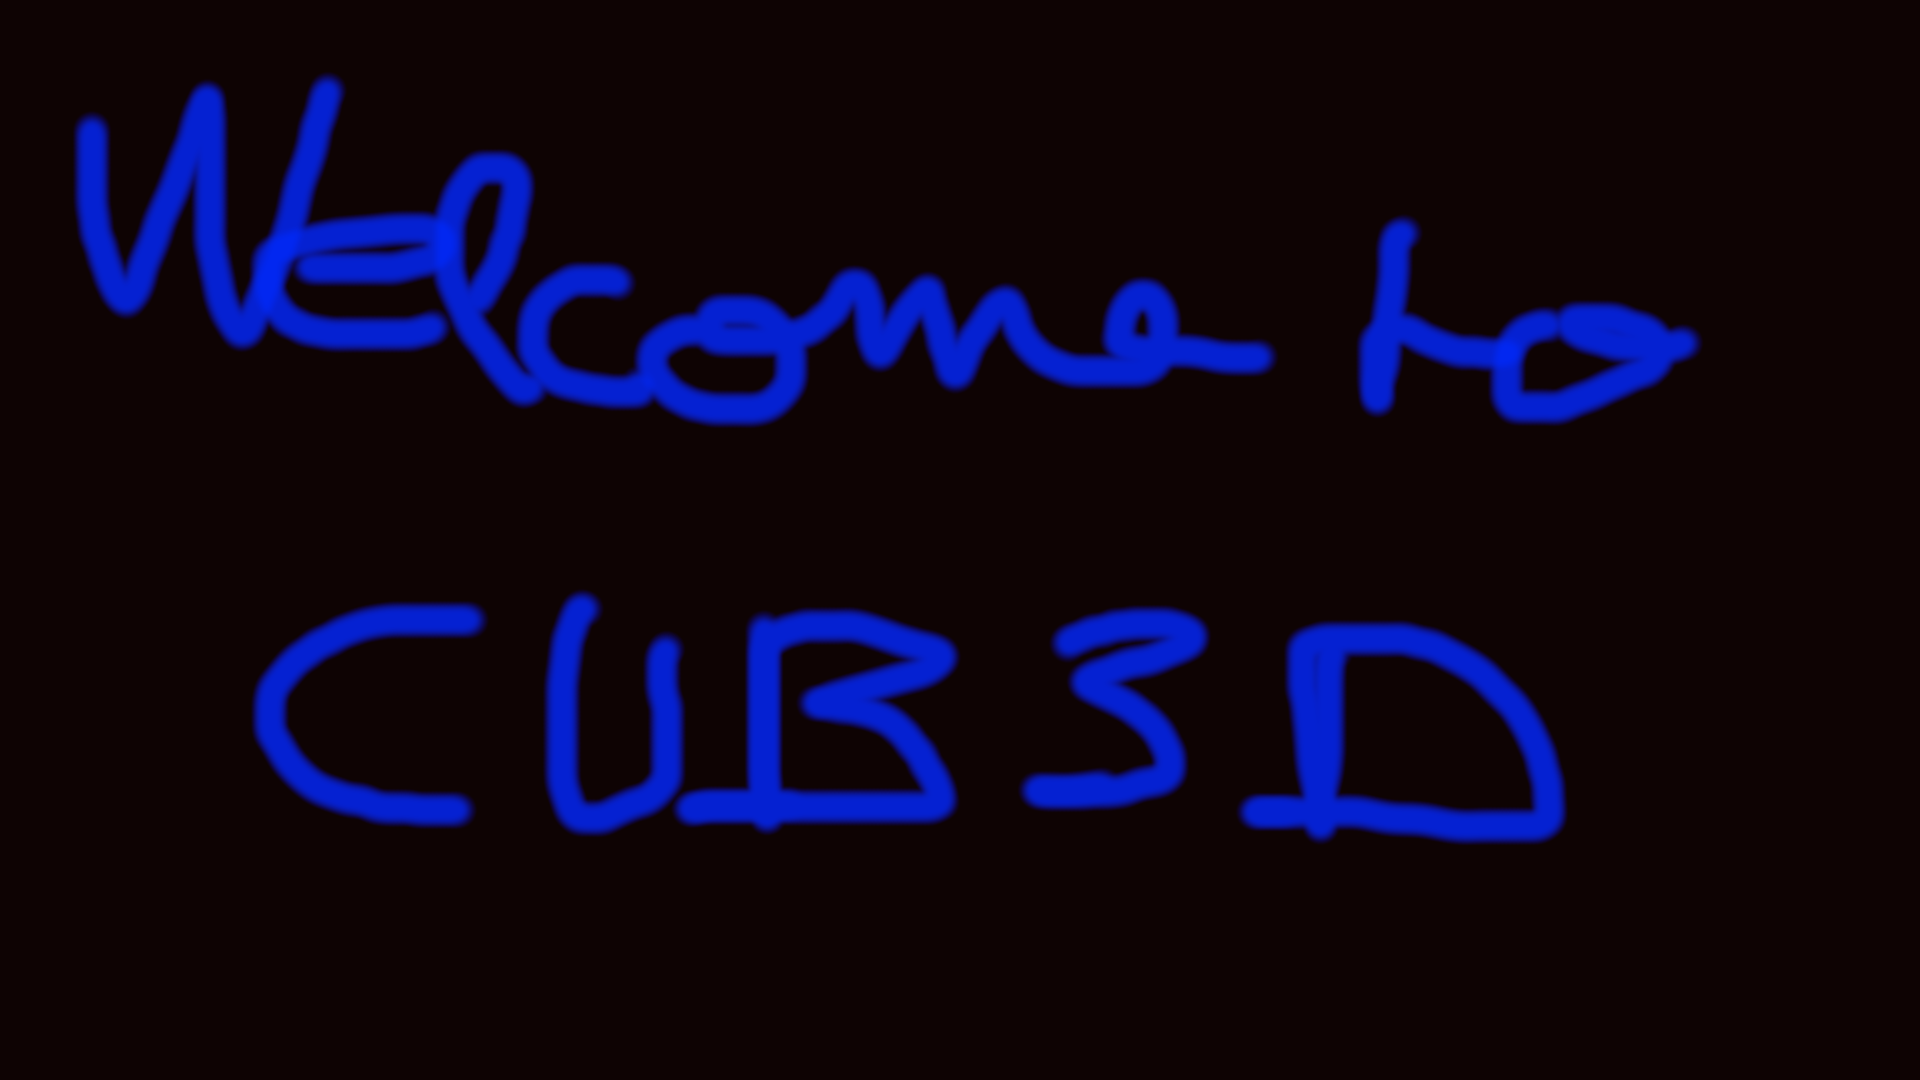 Welcome to
CUB3D